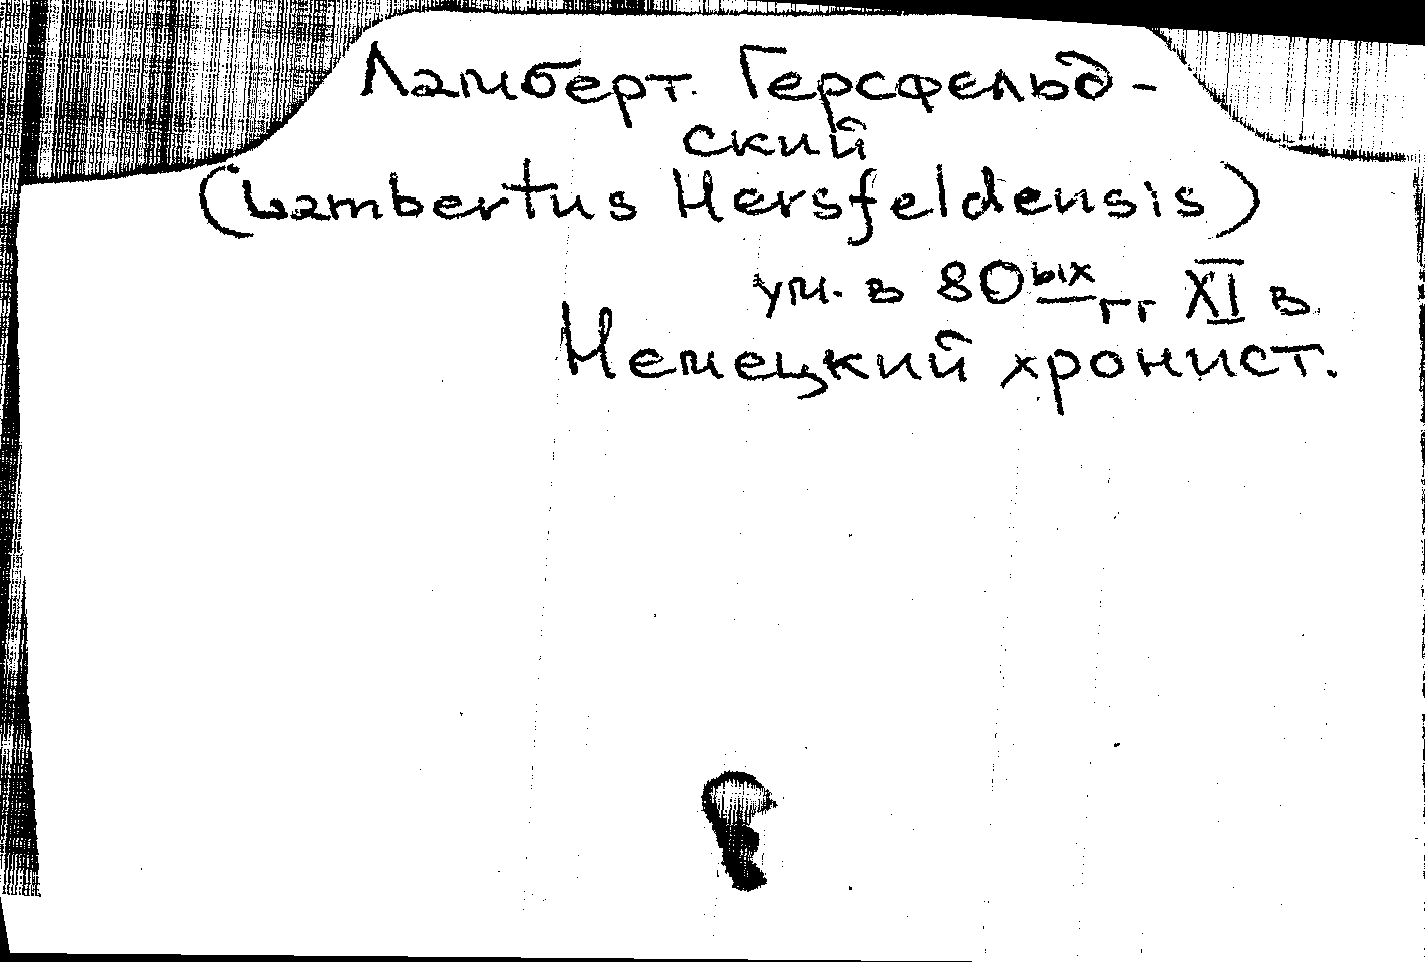 Ламберт Герсфельд-
ский
(Lambertus Hersfeldensis)
ум. в 80ых гг XI в
Немецкий хронист.